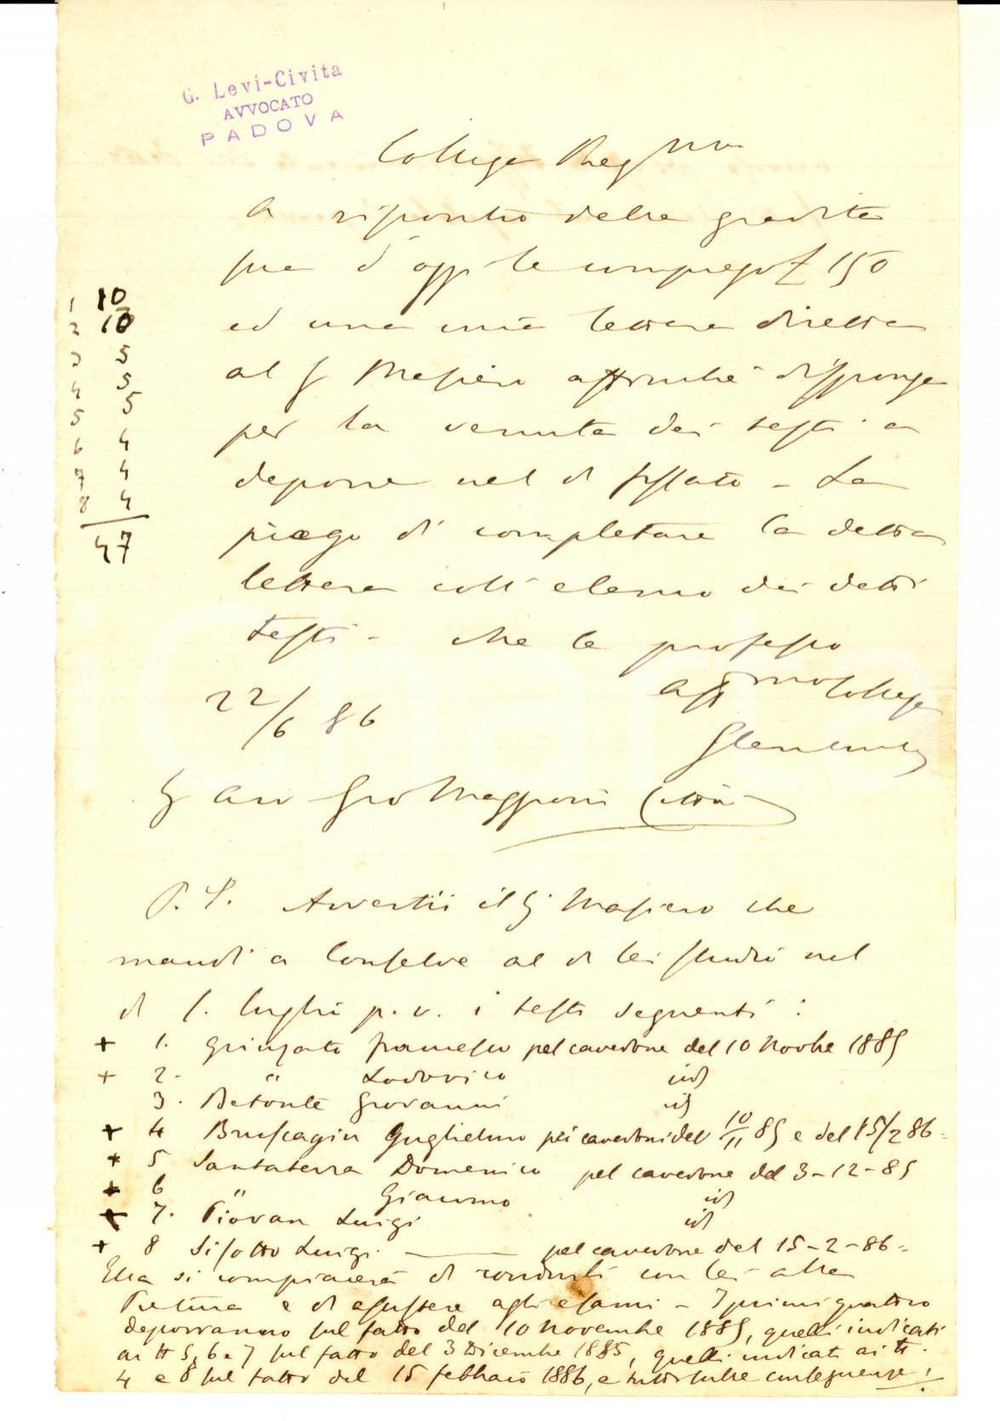 G. Levi-Civita
AVVOCATO
PADOVA
Collega Preg.mo
A riscontro della gradita
sua d'oggi le £ 150
ed una mia lettera diretta
al S. Masiero affinchè disponga
per la venuta dei testi a
deporre nel dì fissato - La
prego di completare la detta
lettera coll'elenco dei detti
testi -
Aff.mo Collega
22/6 86
Città
1 10
2 10
3 5
4 5
5 5
6 4
7 4
8 4
47
P.S. Avverta il S. Masiero che
mandi a Conselve al di lei studio nel
dì 1. luglio p.v. i testi seguenti:
+ 1. Grinzato Francesco pel cavedone del 10 Novbe 1885
+ 2. " Lodovico id
3. Betonte Giovanni id
+ 4 Bruscagin Guglielmo pei cavedoni del 10/11 85 e del 15/2 86
+ 5 Santaterra Domenico pel cavedone del 3-12-85
+ 6 " Giacomo id
+ 7. Piovan Luigi id
+ 8 Sisotto Luigi pel cavedone del 15-2-86
Ella si compiacerà di condursi con lei alla
Pretura e di assistere agli esami - I primi quattro
deporranno sul fatto del 10 Novembre 1885, quelli indicati
ai N 5, 6 e 7 sul fatto del 3 Dicembre 1885, quelli indicati ai N.
4 e 8 sul fatto del 15 febbraio 1886, e tutti sulle conseguenze!